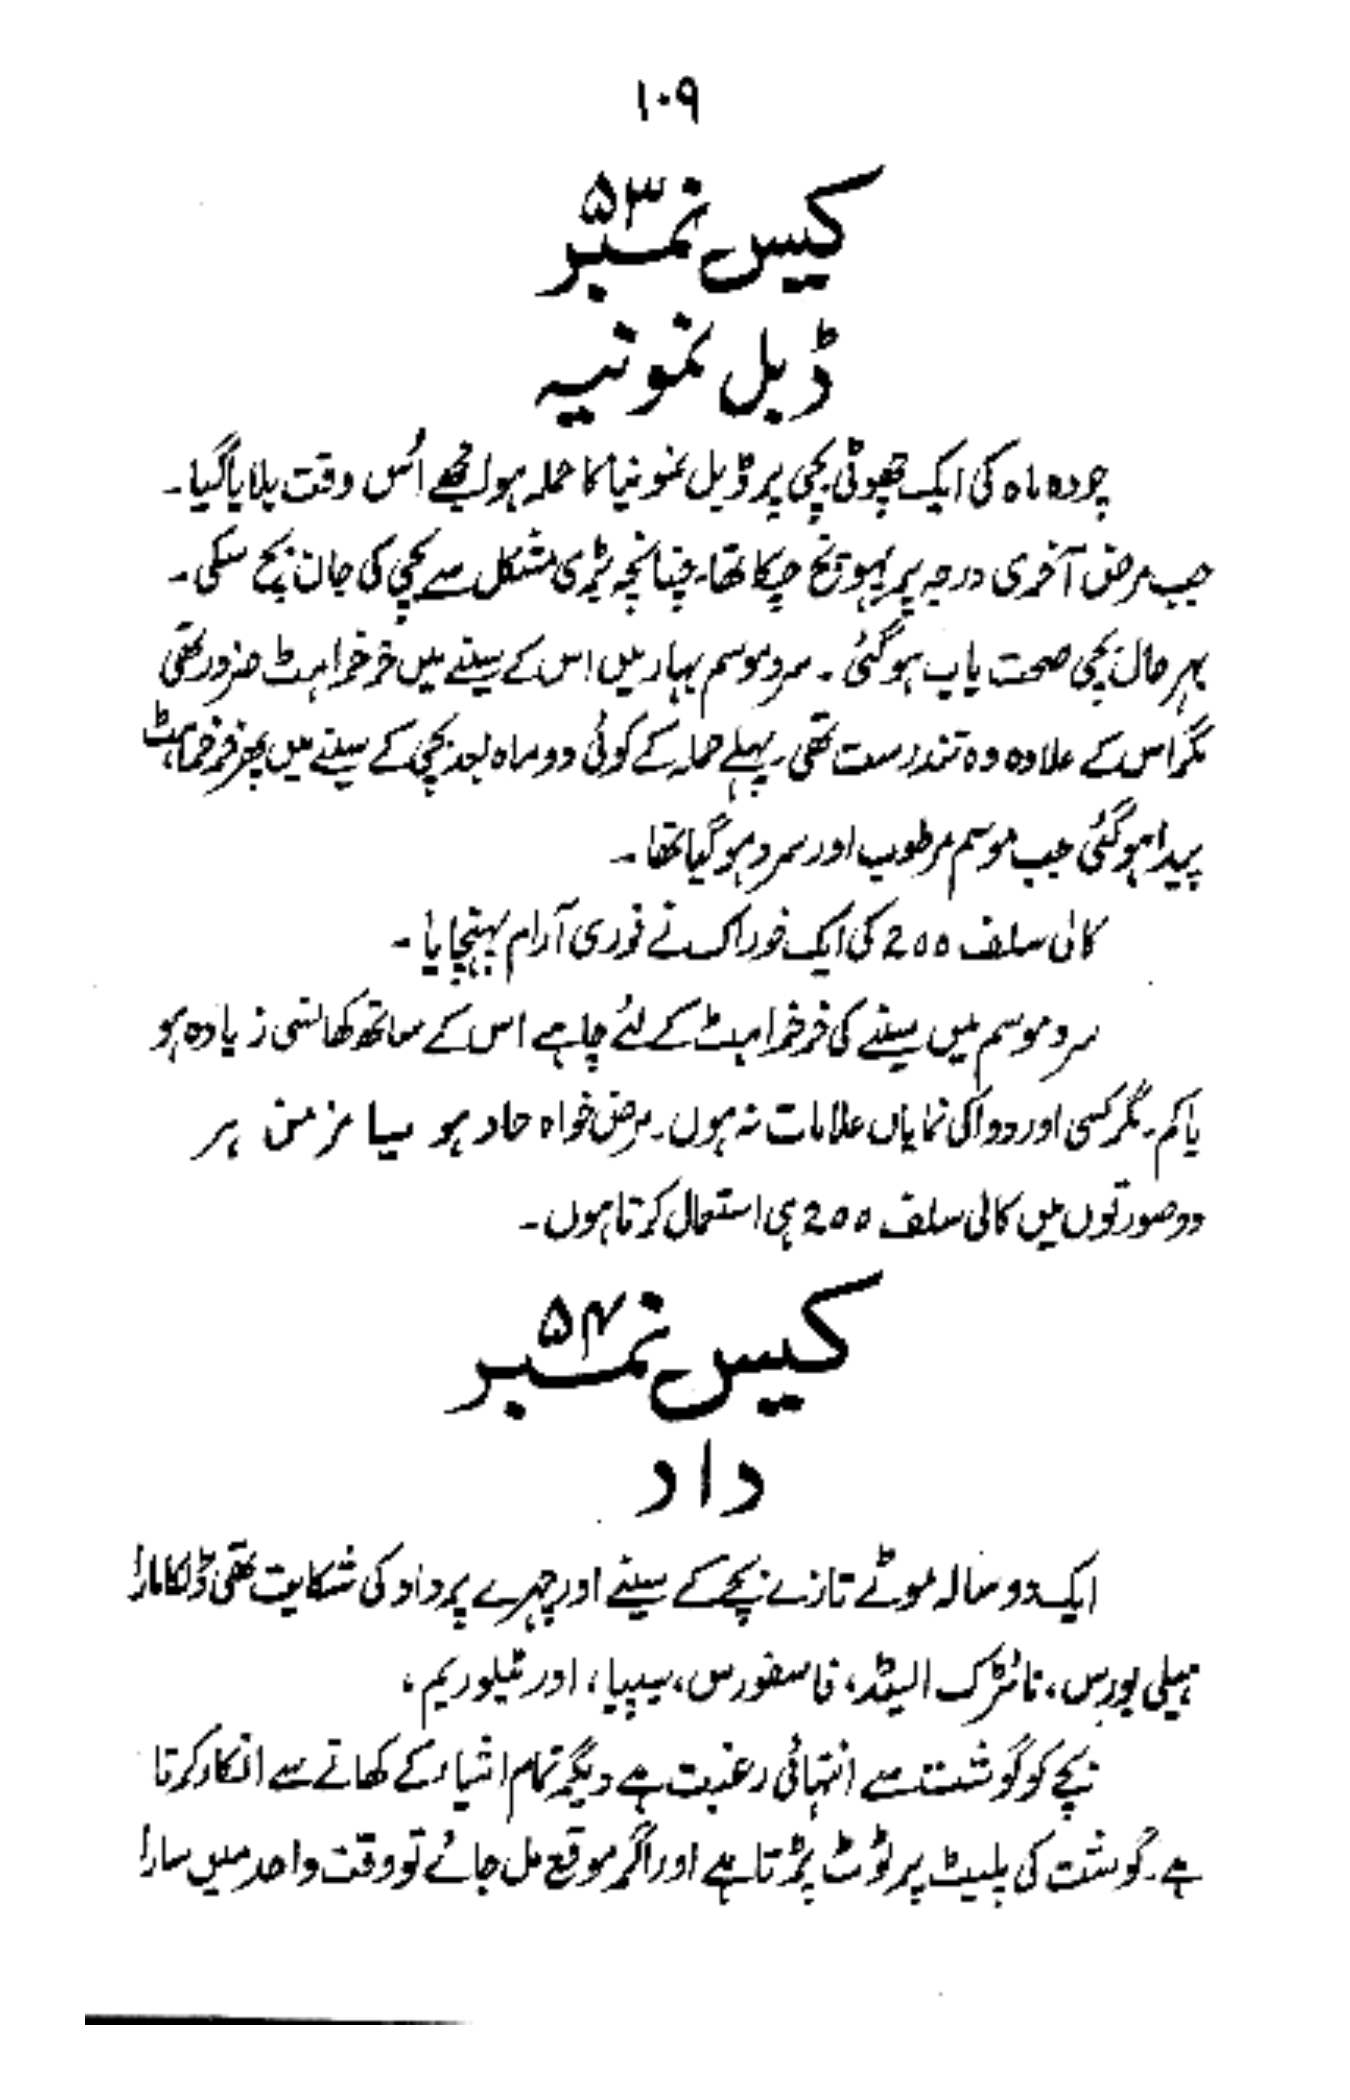 ۱۰۹
کیس نمبر ۵۳
ڈبل نمونیہ
چودہ ماہ کی ایک چھوٹی بچی پر ڈبل نمونیا کا حملہ ہوا مجھے اُس وقت بلایا گیا۔
جب مرض آخری درجہ پر پہونچ چکا تھا۔ چنانچہ بڑی مشکل سے بچی کی جان بچ سکی۔
بہر حال بچی صحت یاب ہوگئی ۔ سرد موسم بہار میں اس کے سینے میں خرخراہٹ ضرور تھی
مگر اس کے علاوہ وہ تندرست تھی۔ پہلے حملہ کے کوئی دو ماہ بعد بچی کے سینے میں پھر خرخراہٹ
پیدا ہوگئی جب موسم مرطوب اور سرد ہو گیا تھا ۔
کالی سلف 200 کی ایک خوراک نے فوری آرام پہنچایا ۔
سرد موسم میں سینے کی خرخراہٹ کے لئے چاہے اس کے ساتھ کھانسی زیادہ ہو
یا کم۔ مگر کسی اور دوا کی نمایاں علامات نہ ہوں۔ مرض خواہ حاد ہو یا مزمن ہر
دو صورتوں میں کالی سلف 200 ہی استعمال کرتا ہوں۔
کیس نمبر ۵۴
داد
ایک دو سالہ موٹے تازے بچے کے سینے اور چہرے پر داد کی شکایت تھی ڈلکامارا
ہیلی بورس، نائٹرک ایسڈ، فاسفورس، سیپیا، اور ٹیلوریم،
بچے کو گوشت سے انتہائی رغبت ہے دیگر تمام اشیاء کے کھانے سے انکار کرتا
ہے۔ گوشت کی پلیٹ پر ٹوٹ پڑتا ہے اور اگر موقع مل جائے تو وقت واحد میں سارا